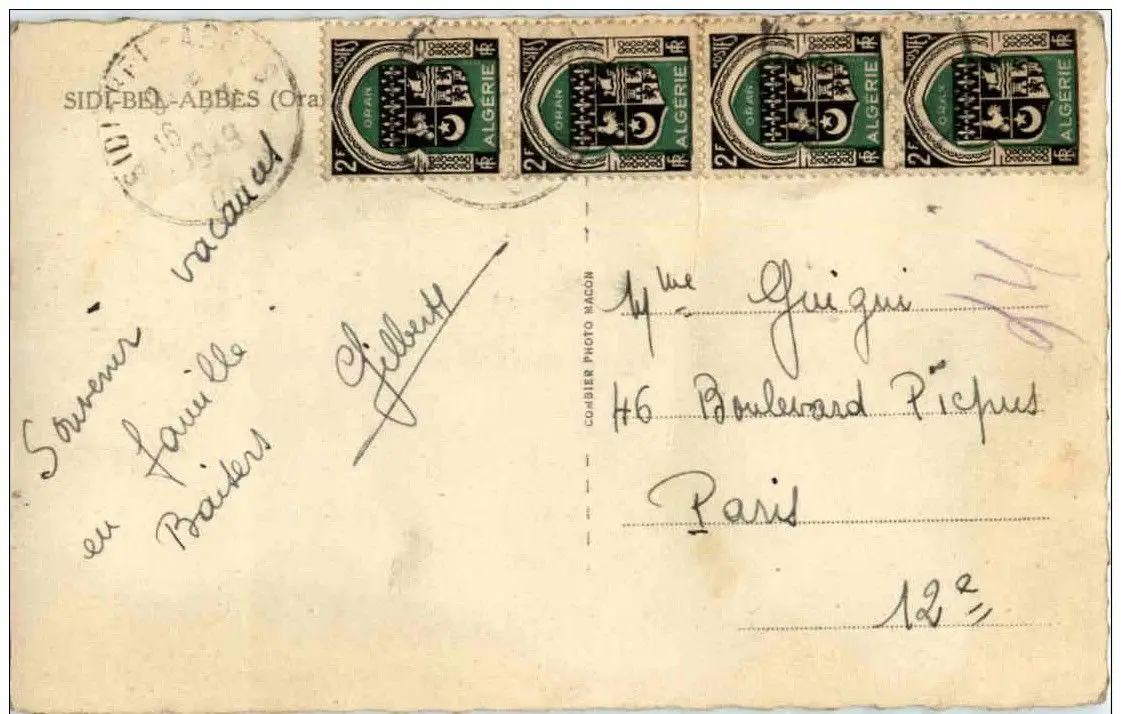 SIDI-BEL-ABBÈS (Ora
1949
POSTES ORAN 2F ALGÉRIE RF
POSTES ORAN 2F ALGÉRIE RF
POSTES ORAN 2F ALGÉRIE RF
POSTES ORAN 2F ALGÉRIE RF
Souvenir vacances
en famille
Baisers
Gilberte
COMBIER PHOTO MACON
Mme Guigui
46 Boulevard Picpus
Paris
12e